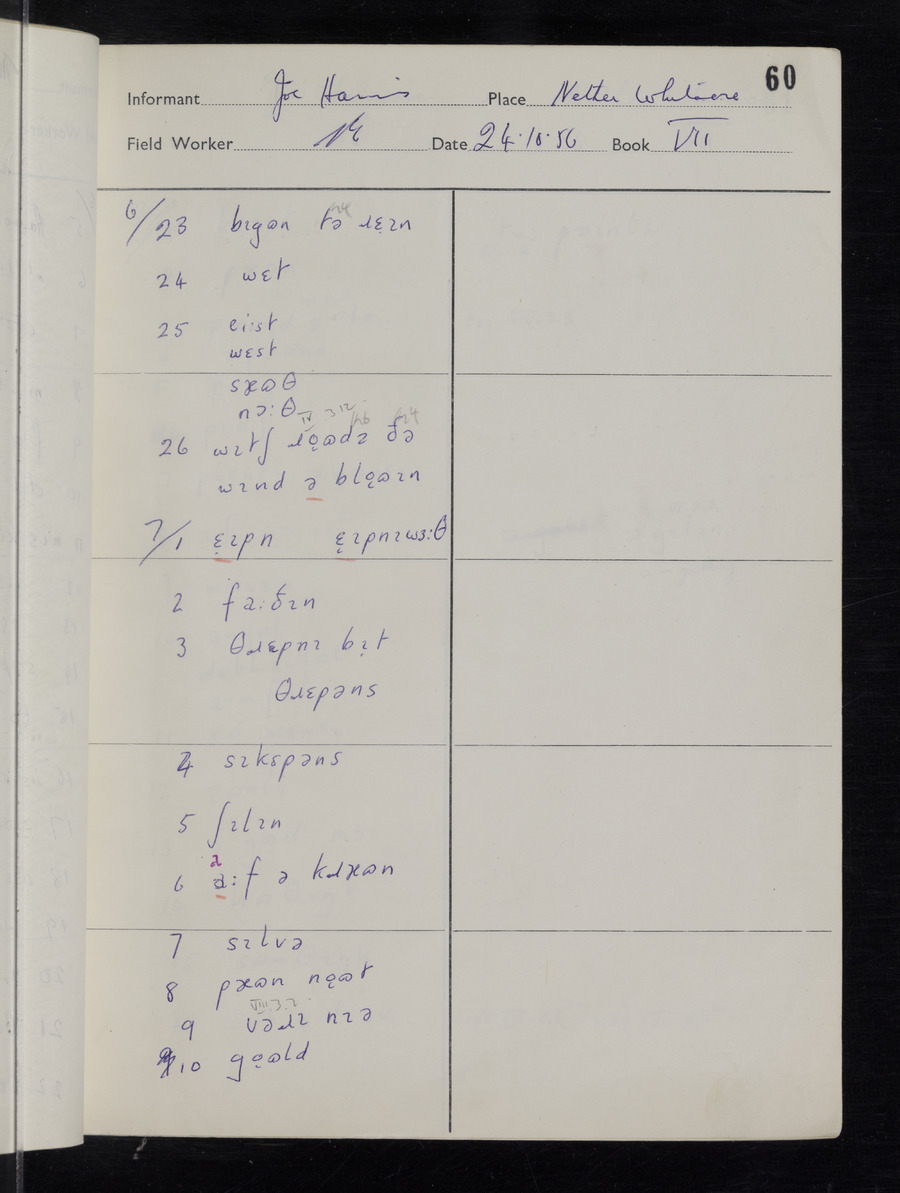 60
Informant Joe Harris Place Nether Whitacre
Field Worker Date 24.10.56 Book VII
6/23 bɪgɷn tə ɹɛ̣ɪn
24 wɛt
25 eiːst
wɛst
sæɷθ
nɔːθ
IV 3 12
26 wɪtʃ ɹọɷdɪ ðə
wɪnd ə blọɷɪn
7/1 ɛ̣ɪpn ɛ̣ɪpnɪwɜːθ
2 faːðɪn
3 θɹɛpnɪ bɪ̣t
θɹɛpəns
4 sɪkspəns
5 ʃɪlɪn
6 aːf ə kɹæɷn
7 sɪlvə
8 pæɷn nọɷt
VIII.3.2
9 vəɹɪ nɪə
10 gọɷld